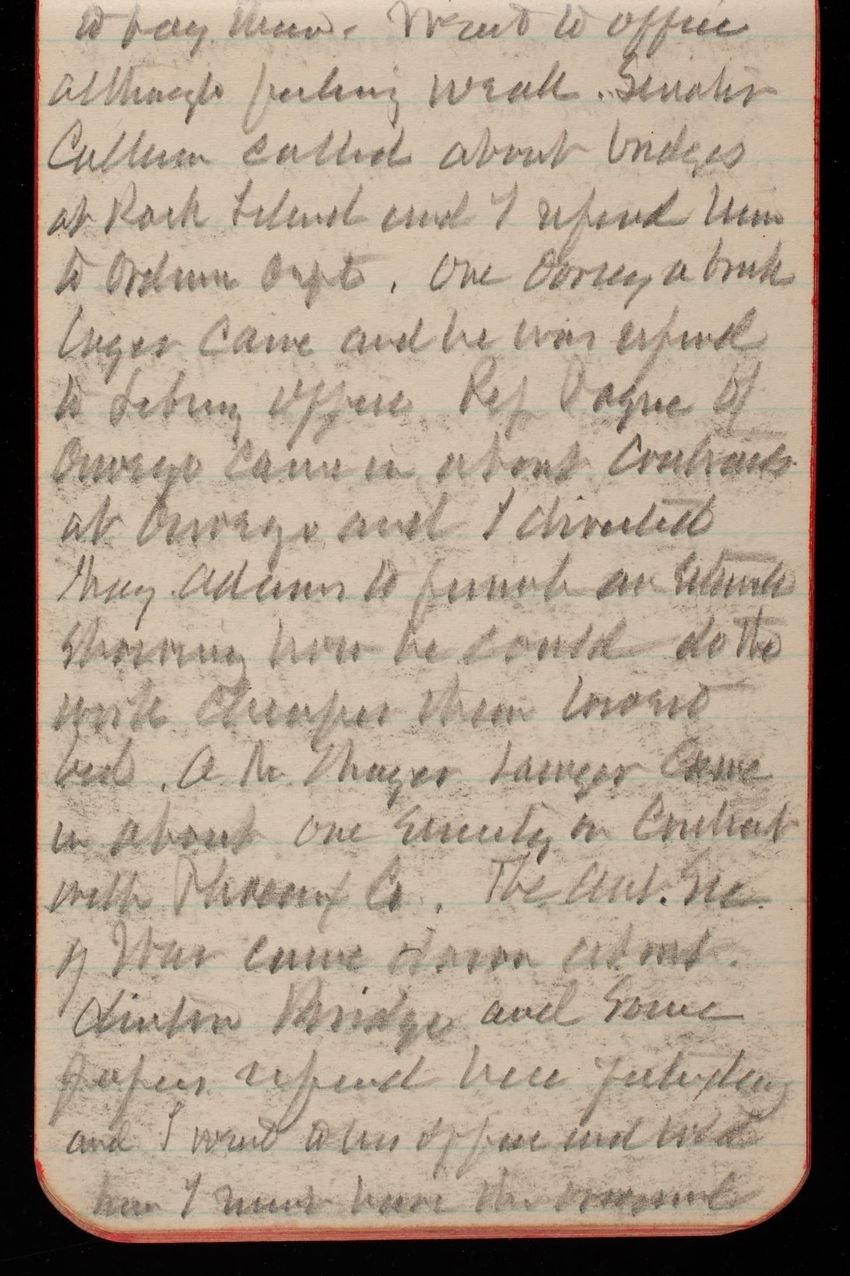 to pay them. Went to office
although feeling weak. Senator
Cullum called about bridges
at Rock Island and I referred him
to Ordnance Dept. One Dorsey a brick
layer came and he was referred
to Library office. Rep Payne of
Oswego came in about Contracts
at Oswego and I directed
Maj Adams to furnish an Estimate
Showing how he could do the
work cheaper than lowest
bid. A M. Thayer Lawyer came
in about one Security on Contract
with Phoenix Co. The Asst. Sec.
of War came down about
Clinton Bridge and Some
papers referred here yesterday
and I went to his office and told
him I must have the